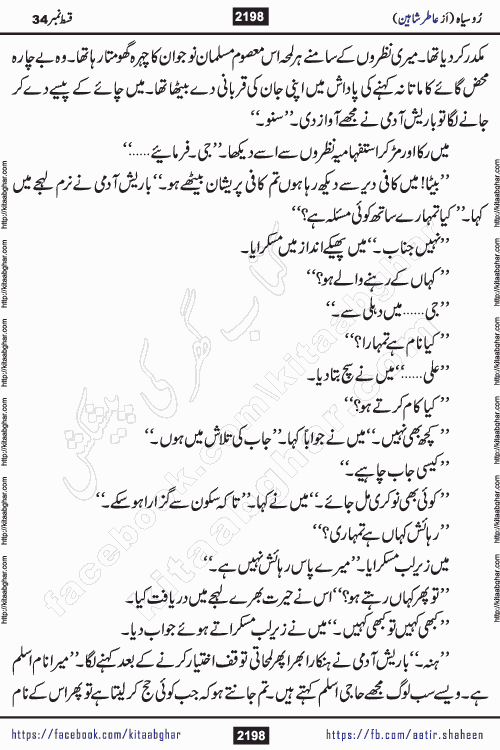 رُوسیاہ (از عاطر شاہین) 2198 قسط نمبر 34
مکدر کر دیا تھا۔ میری نظروں کے سامنے ہر لمحہ اس معصوم مسلمان نوجوان کا چہرہ گھومتا رہا تھا۔ وہ بے چارہ
محض گائے کا ماتا نہ کہنے کی پاداش میں اپنی جان کی قربانی دے بیٹھا تھا۔ میں چائے کے پیسے دے کر
جانے لگا تو باریش آدمی نے مجھے آواز دی۔ ”سنو۔“
میں رکا اور مڑ کر استفہامیہ نظروں سے اسے دیکھا۔ ”جی۔ فرمائیے......“
”بیٹا! میں کافی دیر سے دیکھ رہا ہوں تم کافی پریشان بیٹھے ہو۔“ باریش آدمی نے نرم لہجے میں
کہا۔ ”کیا تمہارے ساتھ کوئی مسئلہ ہے؟“
”نہیں جناب۔“ میں پھیکے انداز میں مسکرایا۔
”کہاں کے رہنے والے ہو؟“
”جی...... میں دہلی سے۔“
”کیا نام ہے تمہارا؟“
”علی......“ میں نے سچ بتا دیا۔
”کیا کام کرتے ہو؟“
”کچھ بھی نہیں۔“ میں نے جواباً کہا۔ ”جاب کی تلاش میں ہوں۔“
”کیسی جاب چاہیے۔“
”کوئی بھی نوکری مل جائے۔“ میں نے کہا۔ ”تاکہ سکون سے گزارا ہو سکے۔“
”رہائش کہاں ہے تمہاری؟“
میں زیرلب مسکرایا۔ ”میرے پاس رہائش نہیں ہے۔“
”تو پھر کہاں رہتے ہو؟“ اس نے حیرت بھرے لہجے میں دریافت کیا۔
”کبھی کہیں تو کبھی کہیں۔“ میں نے زیرلب مسکراتے ہوئے جواب دیا۔
”ہنہ۔“ باریش آدمی نے ہنکارا بھرا پھر لمحاتی توقف اختیار کرنے کے بعد کہنے لگا۔ ”میرا نام اسلم
ہے۔ ویسے سب لوگ مجھے حاجی اسلم کہتے ہیں۔ تم جانتے ہو کہ جب کوئی حج کر لیتا ہے تو پھر اس کے نام
https://facebook.com/kitaabghar 2198 https://fb.com/aatir.shaheen
http://kitaabghar.com http://kitaabghar.com http://kitaabghar.com http://kitaabghar.com http://kitaabghar.com http://kitaabghar.com
http://kitaabghar.com http://kitaabghar.com http://kitaabghar.com http://kitaabghar.com http://kitaabghar.com http://kitaabghar.com
کتاب گھر کی پیشکش
facebook.com/kitaabghar
kitaabghar.com